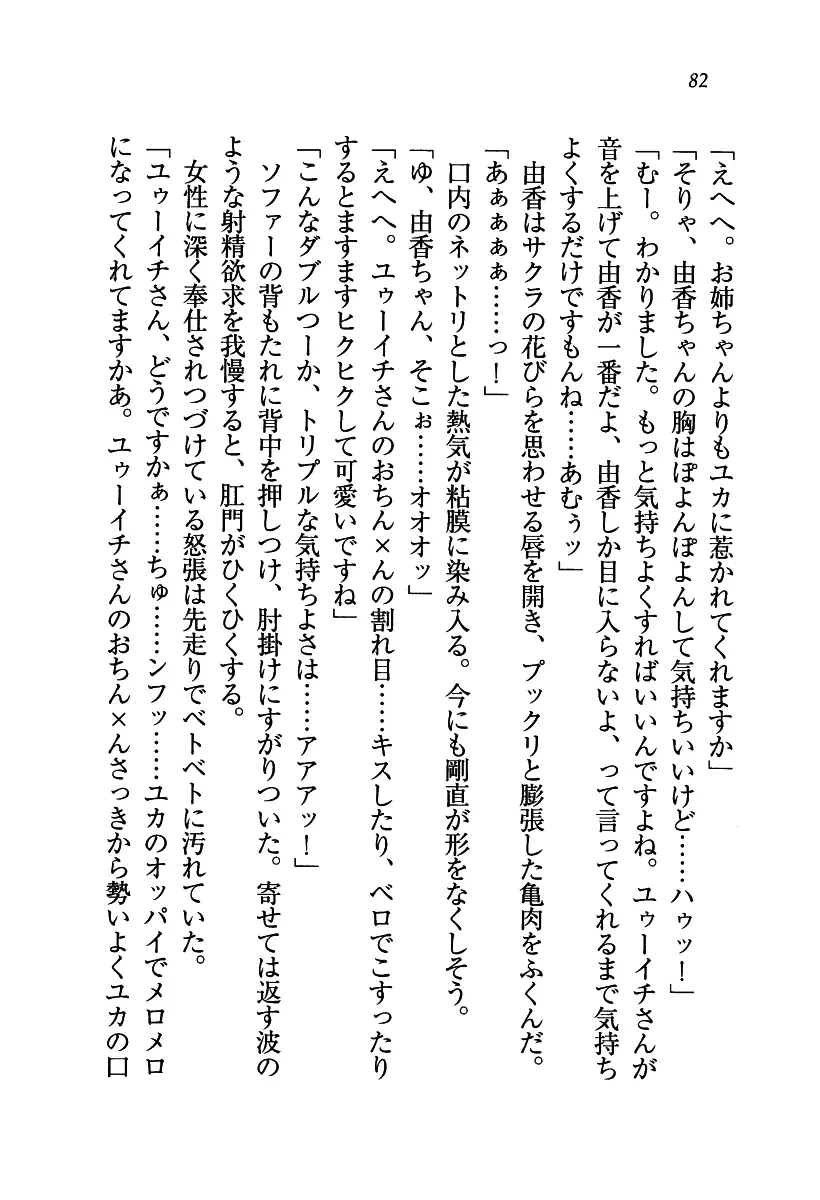 82
「えへへ。お姉ちゃんよりもユカに惹かれてくれますか」
「そりゃ、由香ちゃんの胸はぽよんぽよんして気持ちいいけど……ハゥッ！」
「むー。わかりました。もっと気持ちよくすればいいんですよね。ユゥーイチさんが
音を上げて由香が一番だよ、由香しか目に入らないよ、って言ってくれるまで気持ち
よくするだけですもんね……あむぅッ」
由香はサクラの花びらを思わせる唇を開き、プックリと膨張した亀肉をふくんだ。
「あぁぁぁぁ……っ！」
口内のネットリとした熱気が粘膜に染み入る。今にも剛直が形をなくしそう。
「ゆ、由香ちゃん、そこぉ……オオオッ」
「えへへ。ユゥーイチさんのおちん×んの割れ目……キスしたり、ベロでこすったり
するとますますヒクヒクして可愛いですね」
「こんなダブルつーか、トリプルな気持ちよさは……アアアッ！」
ソファーの背もたれに背中を押しつけ、肘掛けにすがりついた。寄せては返す波の
ような射精欲求を我慢すると、肛門がひくひくする。
女性に深く奉仕されつづけている怒張は先走りでベトベトに汚れていた。
「ユゥーイチさん、どうですかぁ……ちゅ……ンフッ……ユカのオッパイでメロメロ
になってくれてますかあ。ユゥーイチさんのおちん×んさっきから勢いよくユカの口